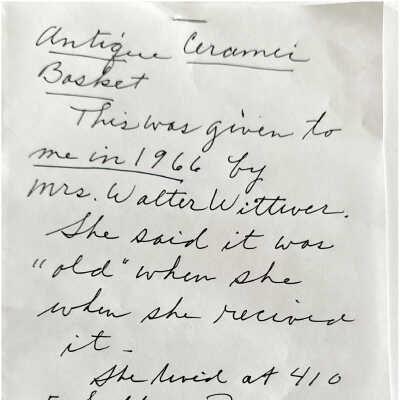 Antique Ceramic
Basket
This was given to
me in 1966 by
Mrs. Walter Wittwer.
She said it was
"old" when she
when she recived
it -
She lived at 410